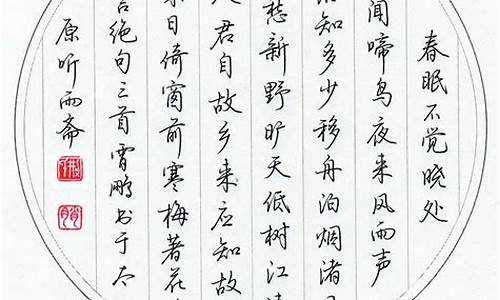 春眠不觉晓处
闻啼鸟夜来风雨声
知多少移舟泊烟渚日
愁新野旷天低树江清
人君自故乡来应知故
来日倚窗前寒梅著花
言绝句三首霄鹏书于太
原听雨斋